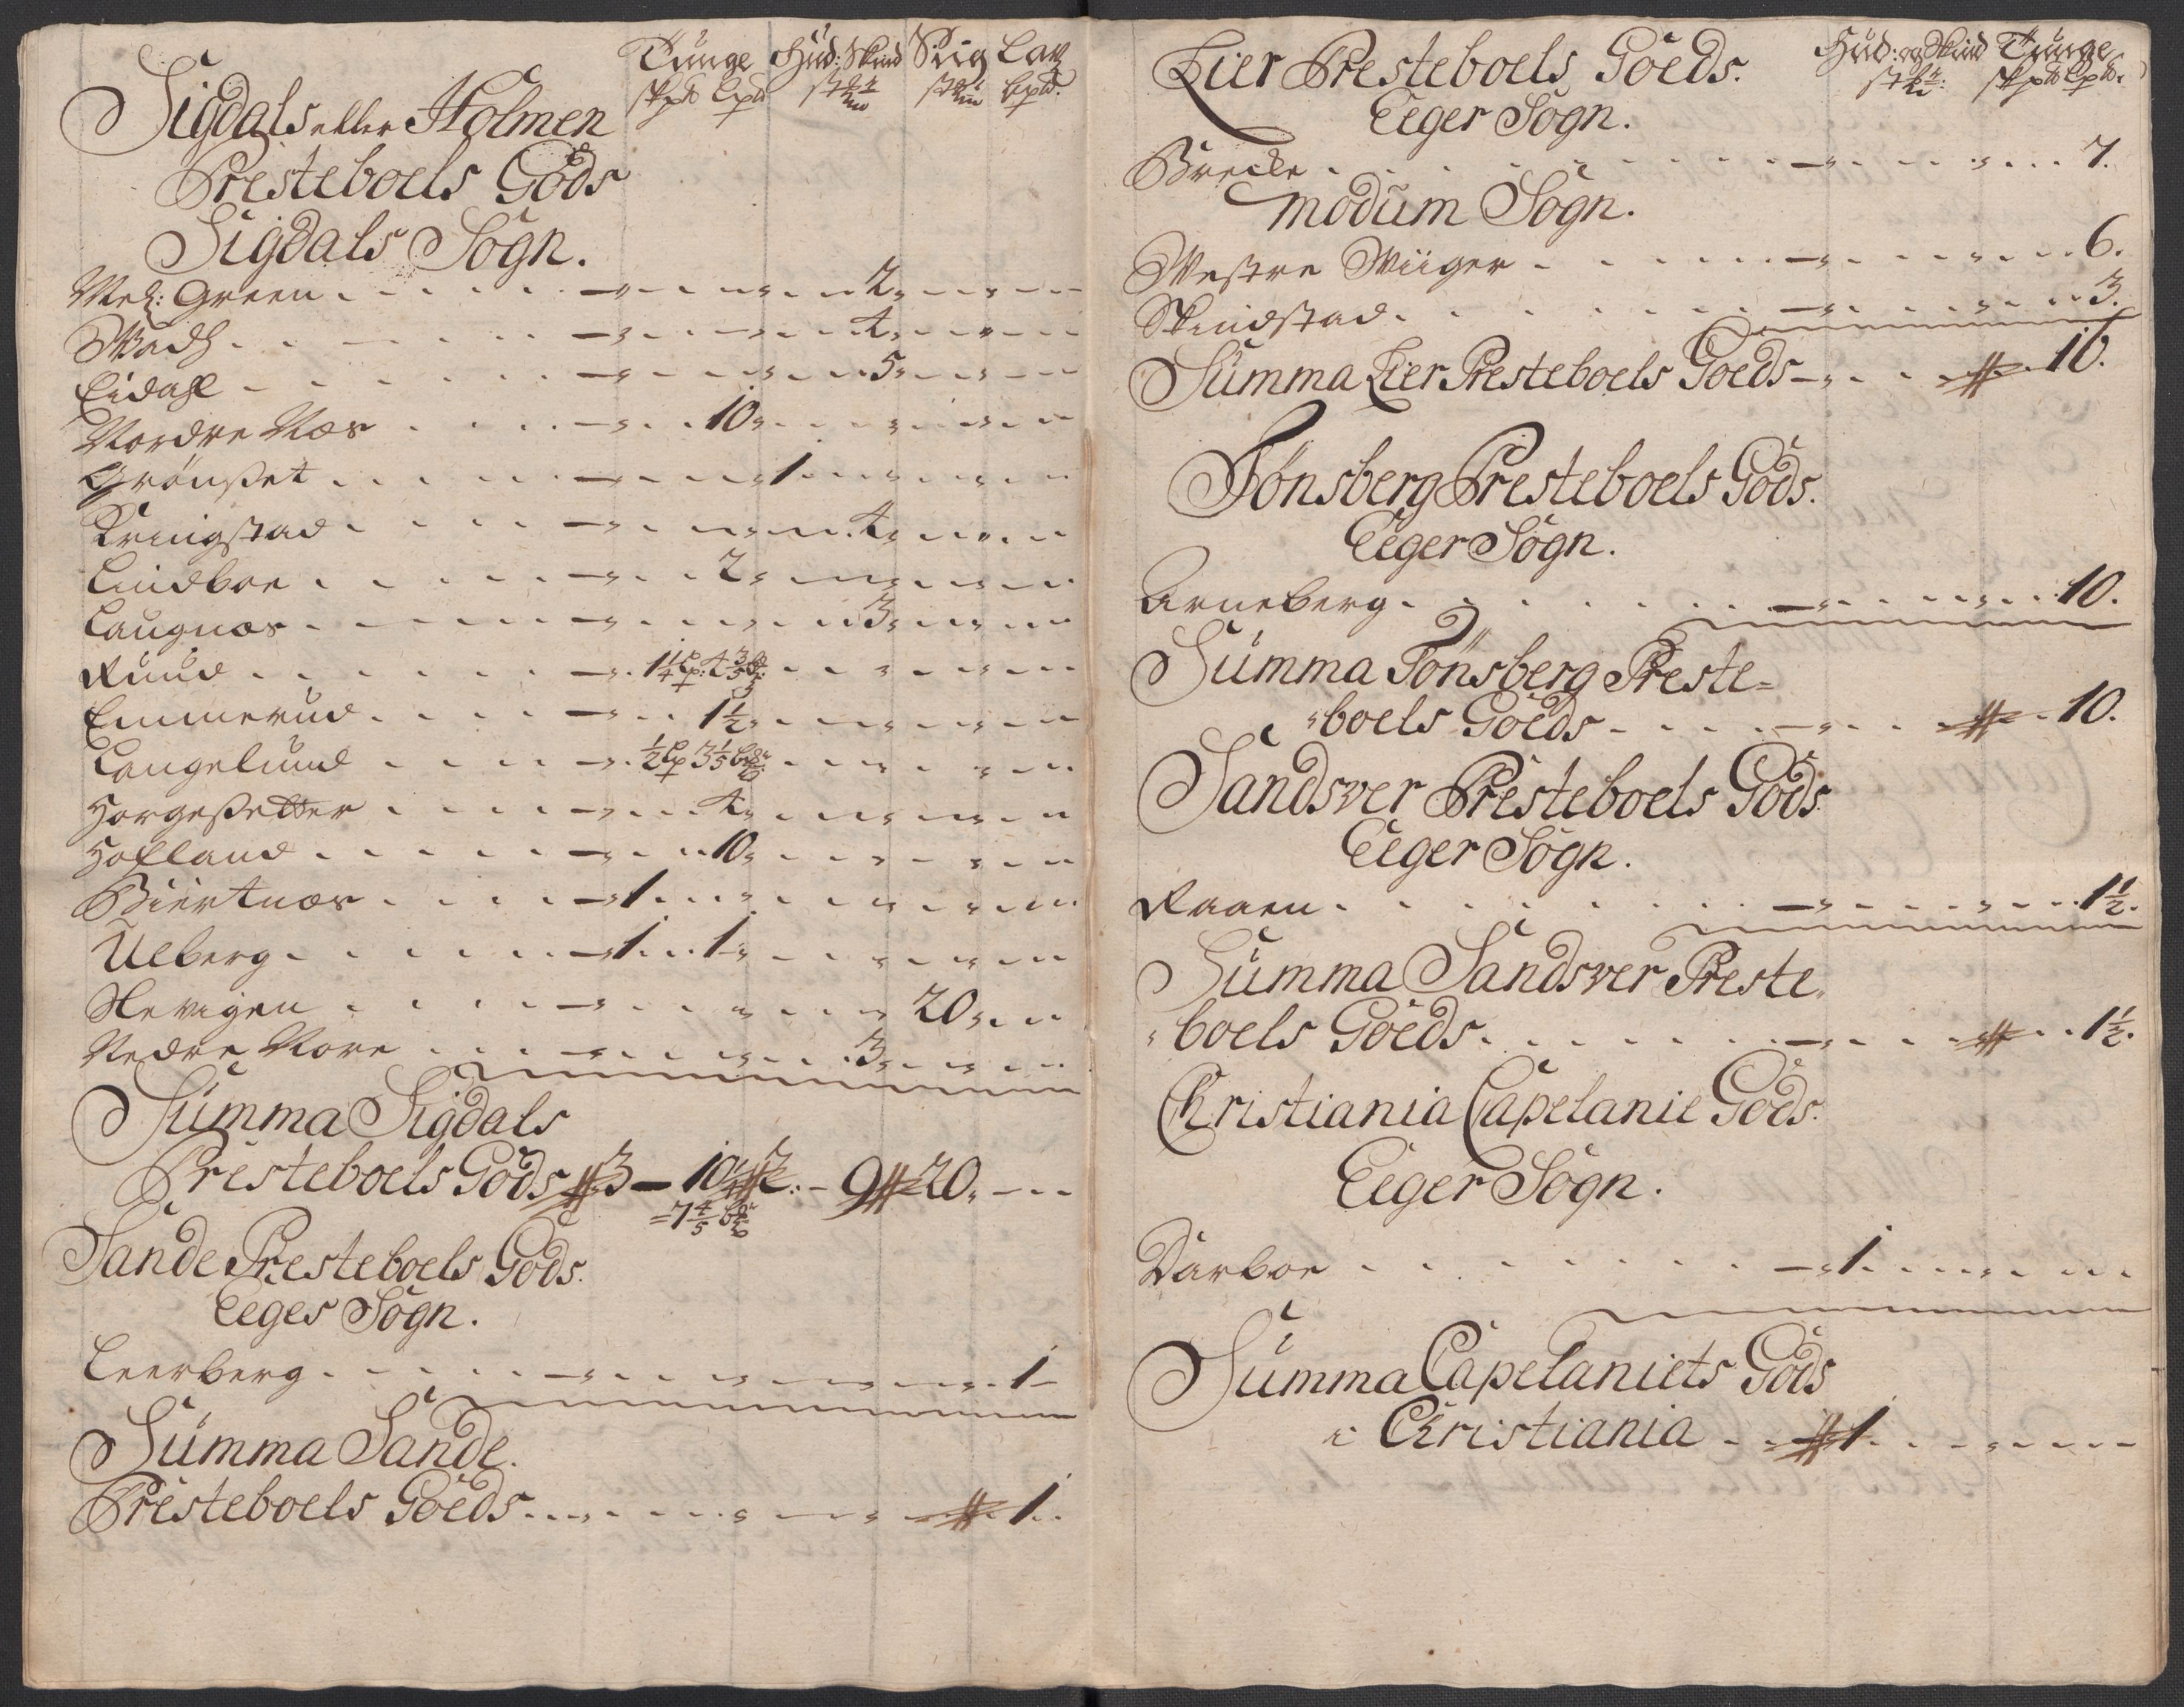 Tunge Hud: Skind Riig Lax
skpd Lpd
Sigdals eller Holmen
Presteboels Gods
Sigdals Sogn.
Mel: Green 2
Wadh 4
Eidahl 5
Nordre Næs 10
Grønsset 1
Kringstad 4
Lindboe 2
Laugnæs 3
Ruud 1 1/4 lp: 4 3/5
Emmerud 1 1/2
Langelund 1/2 lp 3 1/5
Horgessetter 4
Hofland 10
Biertnæs 1
Ulberg 1 1
Nevigen 20
Nedre Nore 3
Summa Sigdals
Presteboels Gods 3 — 10 1/4 2 — 9 20
= 7 4/5
Sande Presteboels Gods.
Eeges Sogn.
Leerberg 1
Summa Sande.
Presteboels Goeds 1
Hud: og Skind Tunge
skpd Lpd.
Lier Presteboels Goeds.
Eeger Sogn.
Brecke 7.
Modum Sogn.
Westre Wiiger 6.
Skindstad 3.
Summa Lier Presteboels Goeds 16.
Tønsberg Presteboels Gods.
Eeger Sogn.
Arneberg 10.
Summa Tønsberg Preste=
boels Goeds 10.
Sandsver Presteboels Gods
Eeger Sogn.
Raaen 1 1/2.
Summa Sandsver Preste
boels Goeds 1 1/2.
Christiania Capelanie Gods.
Eeger Sogn.
Darboe 1
Summa Capelaniets Gods
i Christiania 1